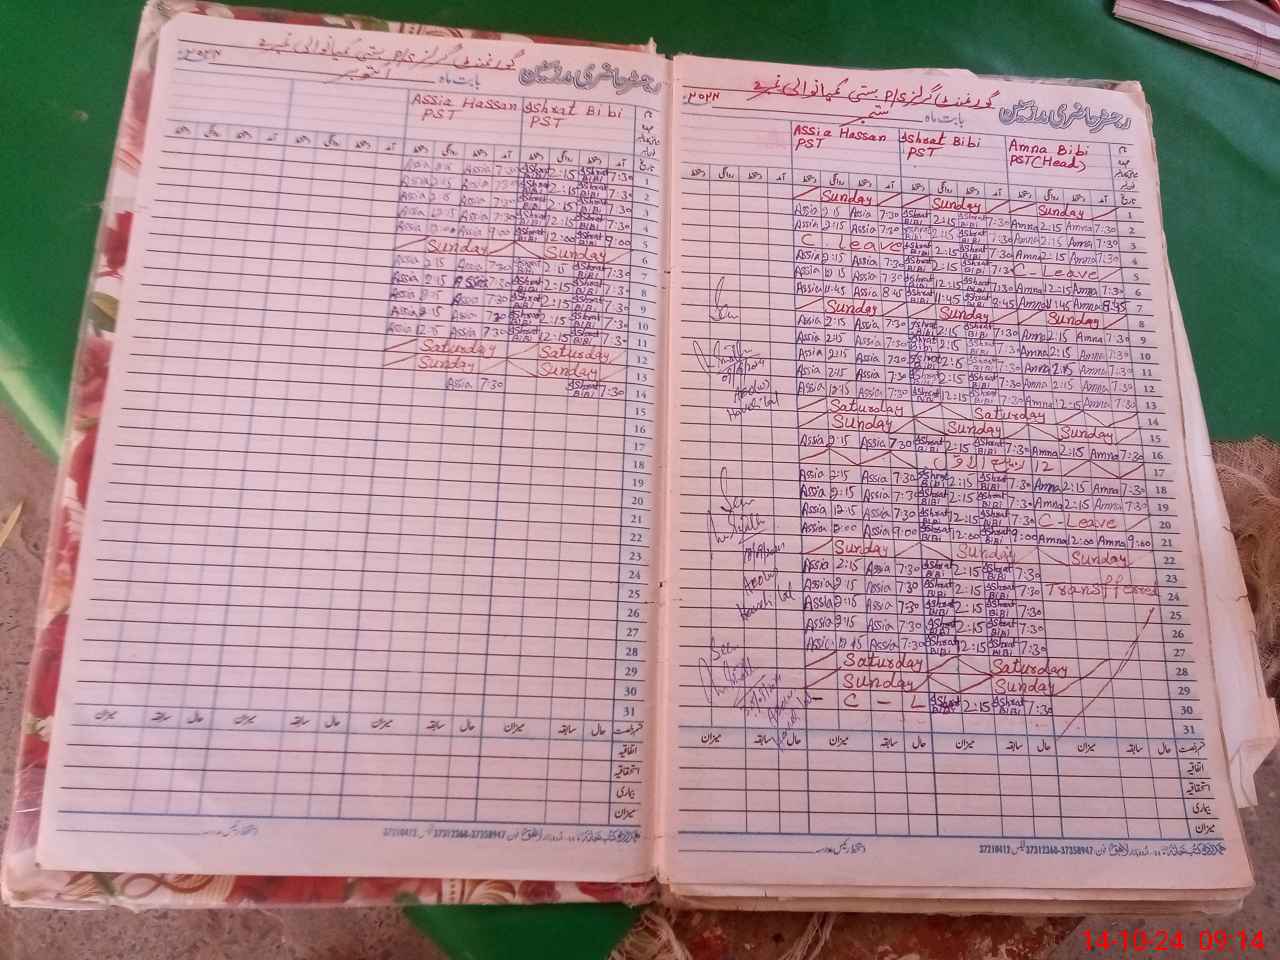 رجسٹر حاضری مدرسین گورنمنٹ گرلز P/S بستی
بابت ماہ ستمبر ۲۰۲۴
Assia Hassan PST Ishrat Bibi PST Amna Bibi PST (Head)
Sunday Sunday Sunday 1
Assia 2:15 Assia 7:30 Ishrat BiBi 2:15 Ishrat BiBi 7:30 Amna 2:15 Amna 7:30 2
Assia 2:15 Assia 7:30 Ishrat BiBi 2:15 Ishrat BiBi 7:30 Amna 2:15 Amna 7:30 3
C. Leave Ishrat BiBi 2:15 Ishrat BiBi 7:30 Amna 2:15 Amna 7:30 4
Assia 2:15 Assia 7:30 Ishrat BiBi 2:15 Ishrat BiBi 7:30 C-Leave 5
Assia 12:15 Assia 7:30 Ishrat BiBi 12:15 Ishrat BiBi 7:30 Amna 12:15 Amna 7:30 6
Assia 11:45 Assia 8:45 Ishrat BiBi 11:45 Ishrat BiBi 8:45 Amna 11:45 Amna 8:45 7
Sunday Sunday Sunday 8
Assia 2:15 Assia 7:30 Ishrat BiBi 2:15 Ishrat BiBi 7:30 Amna 2:15 Amna 7:30 9
Assia 2:15 Assia 7:30 Ishrat BiBi 2:15 Ishrat BiBi 7:30 Amna 2:15 Amna 7:30 10
Assia 2:15 Assia 7:30 Ishrat BiBi 2:15 Ishrat BiBi 7:30 Amna 2:15 Amna 7:30 11
Assia 2:15 Assia 7:30 Ishrat BiBi 2:15 Ishrat BiBi 7:30 Amna 2:15 Amna 7:30 12
Assia 12:15 Assia 7:30 Ishrat BiBi 12:15 Ishrat BiBi 7:30 Amna 12:15 Amna 7:30 13
Saturday Saturday 14
Sunday Sunday Sunday 15
Assia 2:15 Assia 7:30 Ishrat BiBi 2:15 Ishrat BiBi 7:30 Amna 2:15 Amna 7:30 16
12 ربیع الاول 17
Assia 2:15 Assia 7:30 Ishrat BiBi 2:15 Ishrat BiBi 7:30 Amna 2:15 Amna 7:30 18
Assia 2:15 Assia 7:30 Ishrat BiBi 2:15 Ishrat BiBi 7:30 Amna 2:15 Amna 7:30 19
Assia 12:15 Assia 7:30 Ishrat BiBi 12:15 Ishrat BiBi 7:30 C-Leave 20
Assia 12:00 Assia 9:00 Ishrat BiBi 12:00 Ishrat BiBi 9:00 Amna 12:00 Amna 9:00 21
Sunday Sunday Sunday 22
Assia 2:15 Assia 7:30 Ishrat BiBi 2:15 Ishrat BiBi 7:30 23
Assia 2:15 Assia 7:30 Ishrat BiBi 2:15 Ishrat BiBi 7:30 Transffered 24
Assia 2:15 Assia 7:30 Ishrat BiBi 2:15 Ishrat BiBi 7:30 25
Assia 2:15 Assia 7:30 Ishrat BiBi 2:15 Ishrat BiBi 7:30 26
Assia 12:15 Assia 7:30 Ishrat BiBi 12:15 Ishrat BiBi 7:30 27
Saturday Saturday 28
Sunday Sunday 29
- C - L Ishrat BiBi 2:15 Ishrat BiBi 7:30 30
31
میزان سابقہ حال میزان سابقہ حال میزان سابقہ حال
اتفاقیہ
استحقاقیہ
بیماری
میزان
37210412 37312368-37358947
رجسٹر حاضری مدرسین گورنمنٹ گرلز P/S بستی
بابت ماہ اکتوبر ۲۰۲۴
Assia Hassan PST Ishrat Bibi PST
Assia 2:15 Assia 7:30 Ishrat BiBi 2:15 Ishrat BiBi 7:30 1
Assia 2:15 Assia 7:30 Ishrat BiBi 2:15 Ishrat BiBi 7:30 2
Assia 2:15 Assia 7:30 Ishrat BiBi 2:15 Ishrat BiBi 7:30 3
Assia 12:15 Assia 7:30 Ishrat BiBi 12:15 Ishrat BiBi 7:30 4
Assia 12:00 Assia 9:00 Ishrat BiBi 12:00 Ishrat BiBi 9:00 5
Sunday Sunday 6
Assia 2:15 Assia 7:30 Ishrat BiBi 2:15 Ishrat BiBi 7:30 7
Assia 2:15 Assia 7:30 Ishrat BiBi 2:15 Ishrat BiBi 7:30 8
Assia 2:15 Assia 7:30 Ishrat BiBi 2:15 Ishrat BiBi 7:30 9
Assia 2:15 Assia 7:30 Ishrat BiBi 2:15 Ishrat BiBi 7:30 10
Assia 12:15 Assia 7:30 Ishrat BiBi 12:15 Ishrat BiBi 7:30 11
Saturday Saturday 12
Sunday Sunday 13
Assia 7:30 Ishrat BiBi 7:30 14
15
16
17
18
19
20
21
22
23
24
25
26
27
28
29
30
31
میزان سابقہ حال میزان سابقہ حال میزان سابقہ حال
اتفاقیہ
استحقاقیہ
بیماری
میزان
37210412 37312368-37358947
14-10-24 09:14